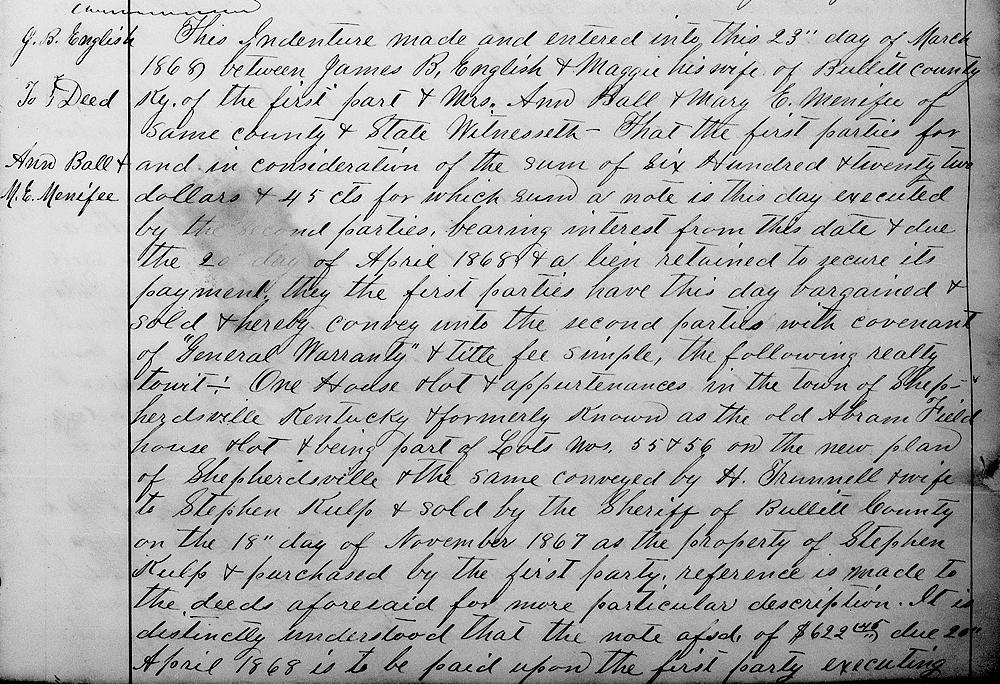 J. B. English
To } Deed
Ann Ball &
M. E. Menifee
This Indenture made and entered into this 23" day of March
1868 between James B. English & Maggie his wife of Bullitt county
Ky. of the first part & Mrs. Ann Ball & Mary E. Menifee of
same county & State Witnesseth - That the first parties for
and in consideration of the sum of six Hundred & twenty two
dollars & 45 cts for which sum a note is this day executed
by the second parties, bearing interest from this date & due
the 20 day of April 1868 & a lien retained to secure its
payment, they the first parties have this day bargained &
sold & hereby convey unto the second parties with covenant
of "General Warranty" & title fee simple, the following realty
towit :- One House & lot & appurtenances in the town of Shep-
herdsville Kentucky & formerly known as the old Abram Field
house & lot & being part of Lots Nos. 55 & 56 on the new plan
of Shepherdsville & the same conveyed by H. Trunnell & wife
to Stephen Kulp & sold by the Sheriff of Bullitt County
on the 18" day of November 1867 as the property of Stephen
Kulp & purchased by the first party. reference is made to
the deeds aforesaid for more particular description. It is
distinctly understood that the note afsd. of $622 45 due 20"
April 1868 is to be paid upon the first party executing